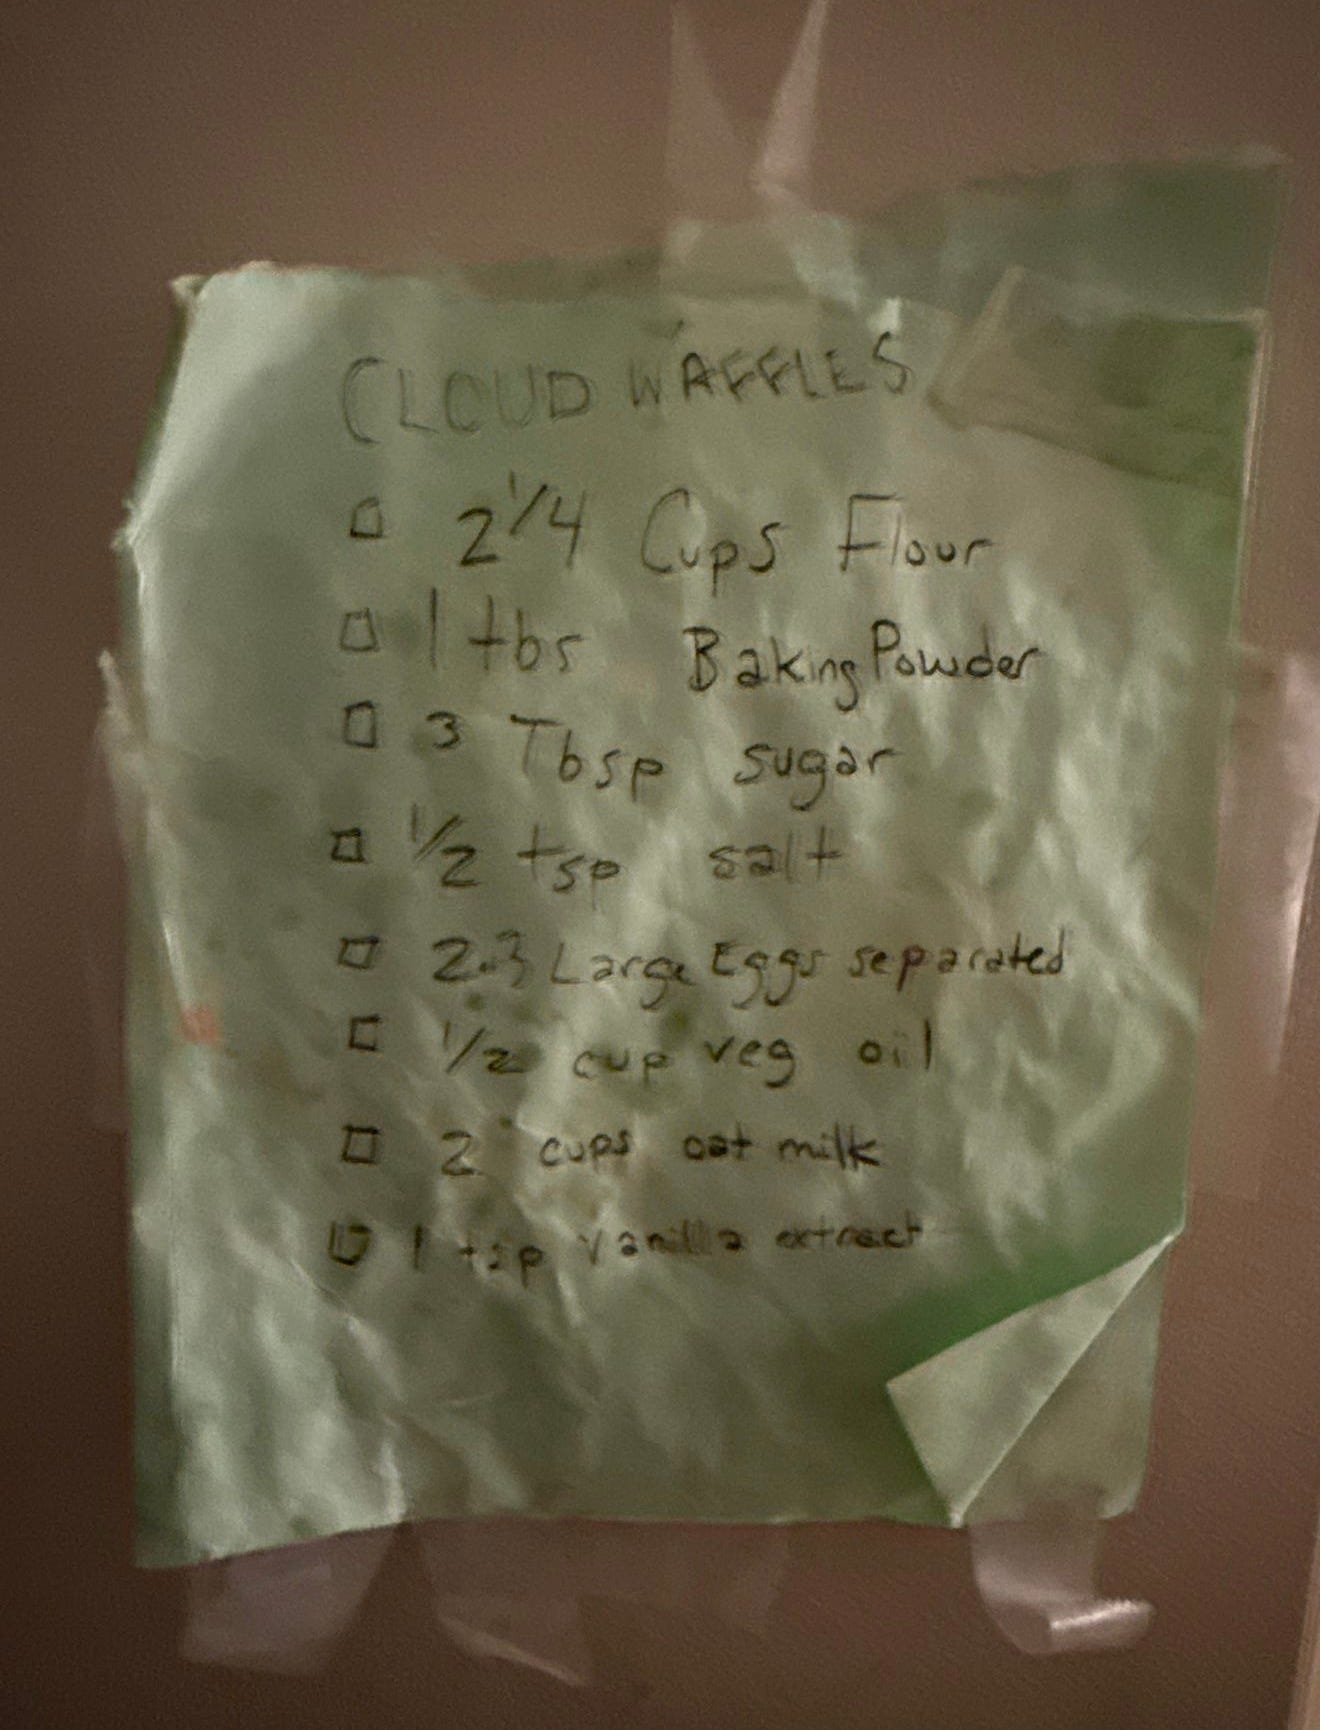 CLOUD WAFFLES
2 1/4 Cups Flour
1 tbs Baking Powder
3 Tbsp sugar
1/2 tsp salt
2-3 Large Eggs separated
1/2 cup veg oil
2 cups oat milk
1 tsp vanilla extract